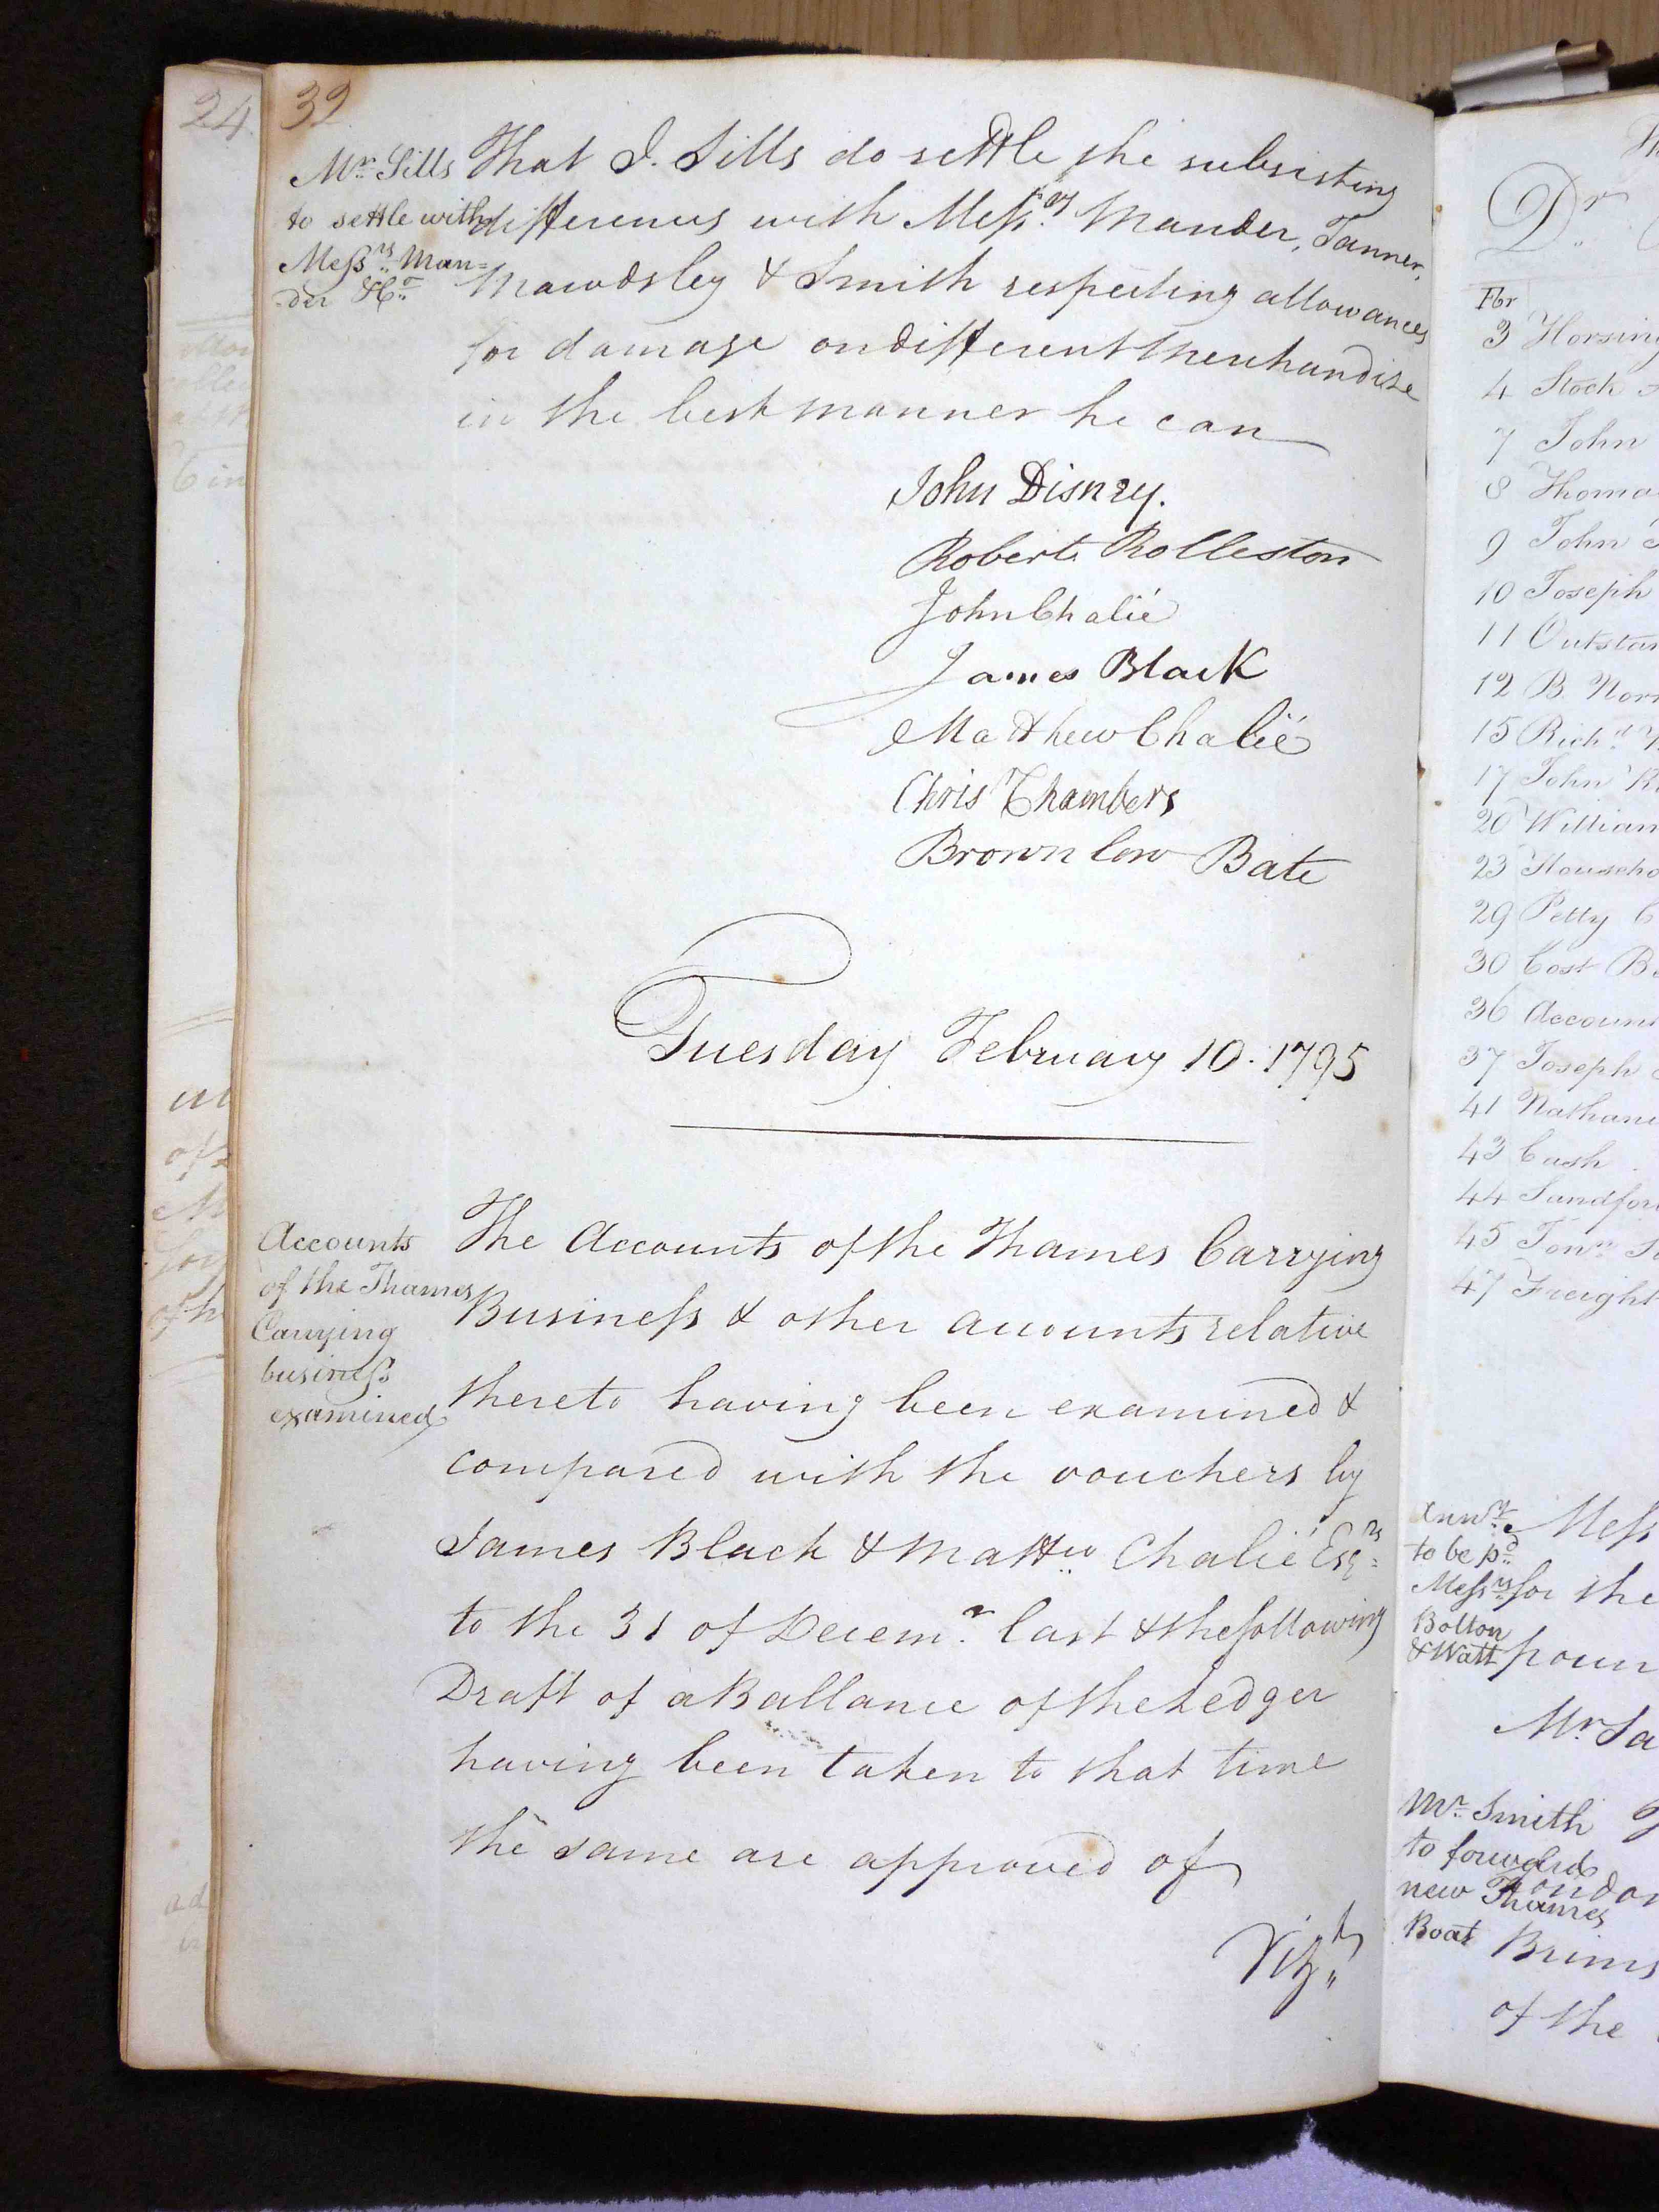 32
Mr. Sills
to settle with
Messrs. Man=
=der & Co.
That J. Sills do settle the subsisting
differences with Messrs. Mander, Tanner,
Mawdsley & Smith respecting allowances
for damage on different Merchandize
in the best manner he can
John Disney.
Robert Rolleston
John Chalié
James Black
Matthew Chalié
Chrisr Chambers
Brownlow Bate
Tuesday February 10. 1795
Accounts
of the Thames
Carrying
business
examined
The Accounts of the Thames Carrying
Business & other accounts relative
thereto having been examined &
compared with the vouchers by
James Black & Mattw. Chalié Esqrs.
to the 31 of Decemr. last & the following
Draft of a Ballance of the Ledger
having been taken to that time
the same are approved of
Vizt.
24
Dr.
For
3
4 Stock
7 John
8
9 John
10 Joseph
11
12 B.
15 Richd.
17 John
20 William
23
29 Petty
30 Cost
36
37 Joseph
41
43 Cash
44
45
47 Freight
to be pd.
Messrs.
Bolton
& Watt
Mess
for the
Mr. Smith
to forward
new Thames
Boat
of the